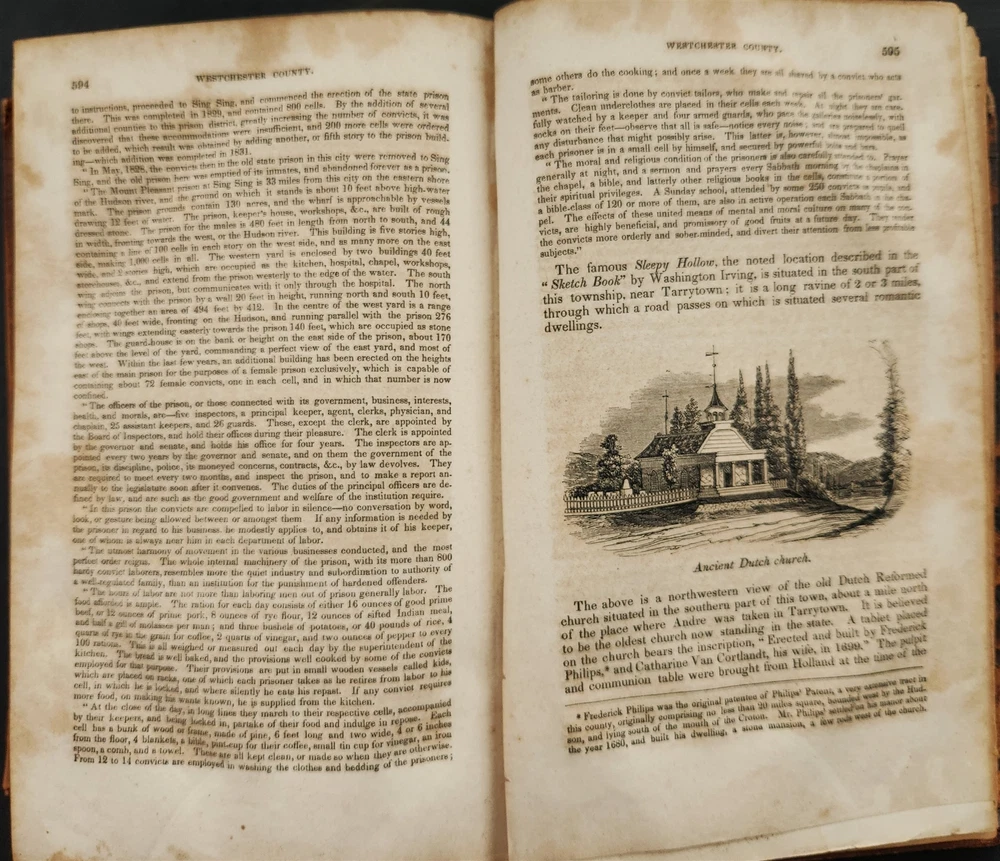 594
WESTCHESTER COUNTY.
to instructions, proceeded to Sing Sing, and commenced the erection of the state prison
there. This was completed in 1829, and contained 800 cells. By the addition of several
additional counties to this prison district, greatly increasing the number of convicts, it was
discovered that these accommodations were insufficient, and 200 more cells were ordered
to be added, which result was obtained by adding another, or fifth story to the prison build-
ing—which addition was completed in 1831.
"In May, 1828, the convicts then in the old state prison in this city were removed to Sing
Sing, and the old prison here was emptied of its inmates, and abandoned forever as a prison.
"The Mount Pleasant prison at Sing Sing is 33 miles from this city on the eastern shore
of the Hudson river, and the ground on which it stands is about 10 feet above high-water
mark. The prison grounds contain 130 acres, and the wharf is approachable by vessels
drawing 12 feet of water. The prison, keeper's house, workshops, &c., are built of rough
dressed stone. The prison for the males is 480 feet in length from north to south, and 44
in width, fronting towards the west, or the Hudson river. This building is five stories high,
containing a line of 100 cells in each story on the west side, and as many more on the east
side, making 1,000 cells in all. The western yard is enclosed by two buildings 40 feet
wide, and 2 stories high, which are occupied as the kitchen, hospital, chapel, workshops,
storehouses, &c., and extend from the prison westerly to the edge of the water. The south
wing adjoins the prison, but communicates with it only through the hospital. The north
wing connects with the prison by a wall 20 feet in height, running north and south 10 feet,
enclosing together an area of 494 feet by 412. In the centre of the west yard is a range
of shops, 40 feet wide, fronting on the Hudson, and running parallel with the prison 276
feet, with wings extending easterly towards the prison 140 feet, which are occupied as stone
shops. The guard-house is on the bank or height on the east side of the prison, about 170
feet above the level of the yard, commanding a perfect view of the east yard, and most of
the west. Within the last few years, an additional building has been erected on the heights
east of the main prison for the purposes of a female prison exclusively, which is capable of
containing about 72 female convicts, one in each cell, and in which that number is now
confined.
"The officers of the prison, or those connected with its government, business, interests,
health, and morals, are—five inspectors, a principal keeper, agent, clerks, physician, and
chaplain, 25 assistant keepers, and 26 guards. These, except the clerk, are appointed by
the Board of Inspectors, and hold their offices during their pleasure. The clerk is appointed
by the governor and senate, and holds his office for four years. The inspectors are ap-
pointed every two years by the governor and senate, and on them the government of the
prison, its discipline, police, its moneyed concerns, contracts, &c., by law devolves. They
are required to meet every two months, and inspect the prison, and to make a report an-
nually to the legislature soon after it convenes. The duties of the principal officers are de-
fined by law, and are such as the good government and welfare of the institution require.
"In this prison the convicts are compelled to labor in silence—no conversation by word,
look, or gesture being allowed between or amongst them If any information is needed by
the prisoner in regard to his business, he modestly applies to, and obtains it of his keeper,
one of whom is always near him in each department of labor.
"The utmost harmony of movement in the various businesses conducted, and the most
perfect order reigns. The whole internal machinery of the prison, with its more than 800
hardy convict laborers, resembles more the quiet industry and subordination to authority of
a well-regulated family, than an institution for the punishment of hardened offenders.
"The hours of labor are not more than laboring men out of prison generally labor. The
food afforded is ample. The ration for each day consists of either 16 ounces of good prime
beef, or 12 ounces of prime pork, 8 ounces of rye flour, 12 ounces of sifted Indian meal,
and half a gill of molasses per man; and three bushels of potatoes, or 40 pounds of rice, 4
quarts of rye in the grain for coffee, 2 quarts of vinegar, and two ounces of pepper to every
100 rations. This is all weighed or measured out each day by the superintendent of the
kitchen. The bread is well baked, and the provisions well cooked by some of the convicts
employed for that purpose. Their provisions are put in small wooden vessels called kids,
which are placed on racks, one of which each prisoner takes as he retires from labor to his
cell, in which he is locked, and where silently he eats his repast. If any convict requires
more food, on making his wants known, he is supplied from the kitchen.
"At the close of the day, in long lines they march to their respective cells, accompanied
by their keepers, and being locked in, partake of their food and indulge in repose. Each
cell has a bunk of wood or frame, made of pine, 6 feet long and two wide, 4 or 6 inches
from the floor, 4 blankets, a bible, pint-cup for their coffee, small tin cup for vinegar, an iron
spoon, a comb, and a towel. These are all kept clean, or made so when they are otherwise.
From 12 to 14 convicts are employed in washing the clothes and bedding of the prisoners;
WESTCHESTER COUNTY.
595
some others do the cooking; and once a week they are all shaved by a convict who acts
as barber.
"The tailoring is done by convict tailors, who make and repair all the prisoners' gar-
ments. Clean underclothes are placed in their cells each week. At night they are care-
fully watched by a keeper and four armed guards, who pace the galleries noiselessly, with
socks on their feet—observe that all is safe—notice every noise; and are prepared to quell
any disturbance that might possibly arise. This latter is, however, almost impossible, as
each prisoner is in a small cell by himself, and secured by powerful bolts and bars.
"The moral and religious condition of the prisoners is also carefully attended to. Prayer
generally at night, and a sermon and prayers every Sabbath morning in the chaplains in
the chapel, a bible, and latterly other religious books in the cells, constitute a portion of
their spiritual privileges. A Sunday school, attended by some 250 convicts as pupils, and
a bible-class of 120 or more of them, are also in active operation each Sabbath in the cha-
pel. The effects of these united means of mental and moral culture on many of the con-
victs, are highly beneficial, and promissory of good fruits at a future day. They render
the convicts more orderly and sober-minded, and divert their attention from less profitable
subjects."
The famous Sleepy Hollow, the noted location described in the
"Sketch Book" by Washington Irving, is situated in the south part of
this township, near Tarrytown; it is a long ravine of 2 or 3 miles,
through which a road passes on which is situated several romantic
dwellings.
Ancient Dutch church.
The above is a northwestern view of the old Dutch Reformed
church situated in the southern part of this town, about a mile north
of the place where Andre was taken in Tarrytown. It is believed
to be the oldest church now standing in the state. A tablet placed
on the church bears the inscription, "Erected and built by Frederick
Philips,* and Catharine Van Cortlandt, his wife, in 1699." The pulpit
and communion table were brought from Holland at the time of the
* Frederick Philips was the original patentee of Philips' Patent, a very extensive tract in
this county, originally comprising no less than 20 miles square, bounded west by the Hud-
son, and lying south of the mouth of the Croton. Mr. Philips settled on his manor about
the year 1680, and built his dwelling, a stone mansion, a few rods west of the church.